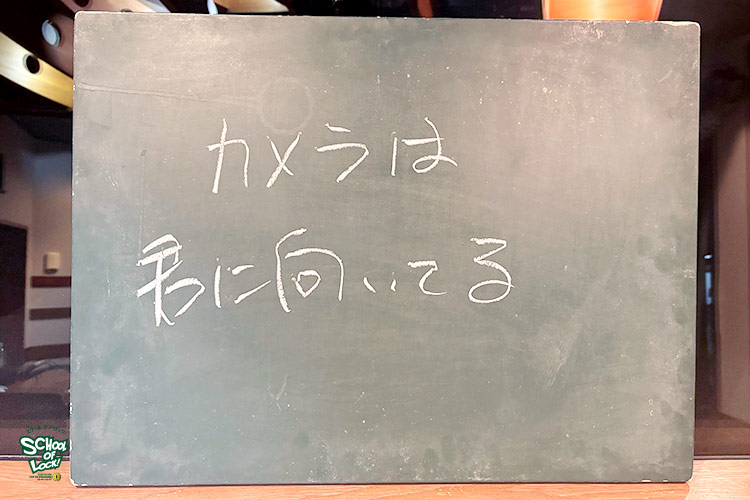 カメラは
君に向いてる
SCHOOL
OF
LOCK!